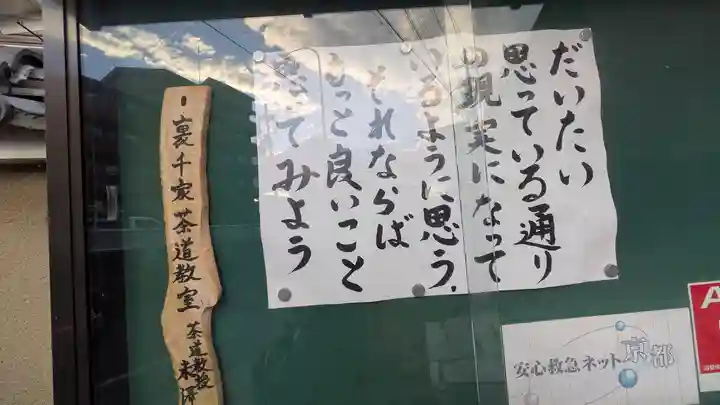 だいたい
思っている通り
の現実になって
いるように思う.
それならば
もっと良いこと
思ってみよう
裏千家茶道教室
茶道教授
安心救急ネット京都
A